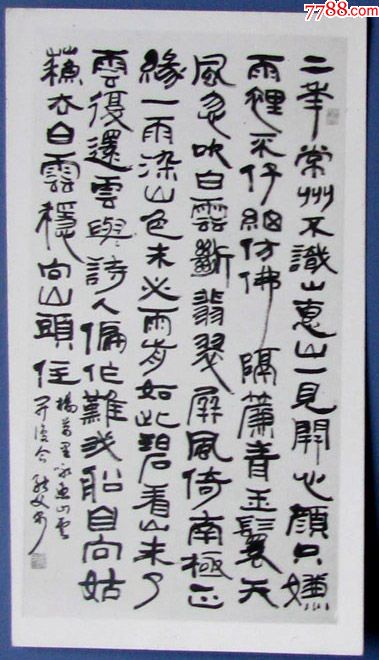 7788.com
二年常州不識山惠山一見開心顏只嫌
雨裡不仔細仿佛隔簾青玉鬟天
風忽吹白雲斷翡翠屏風倚南極正
緣一雨染山色未必雨前如此碧看山未了
雲復還雲與詩人偏作難我船自向姑
蘇去白雲穩向山頭住
楊萬里詠惠山雲
開復合